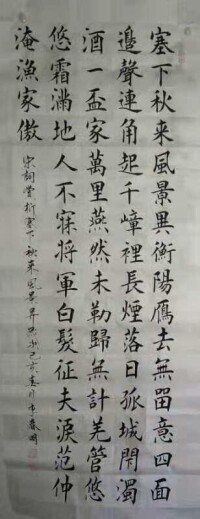 塞下秋来風景異衡陽鴈去無畱意四面
邉聲連角起千嶂裡長煙落日孤城閇濁
酒一盃家萬里燕然未勒歸無計羌管悠
悠霜滿地人不寐將軍白髮征夫淚范仲
淹漁家傲
宋詞賞析塞下秋来風景異